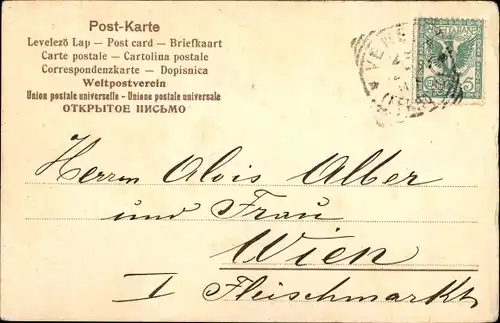 Post-Karte
Levelező Lap — Post card — Briefkaart
Carte postale — Cartolina postale
Correspondenzkarte — Dopisnica
Weltpostverein
Union postale universelle - Unione postale universale
ОТКРЫТОЕ ПИСЬМО
Herrn Alois Alber
und Frau
Wien
I Fleischmarkt